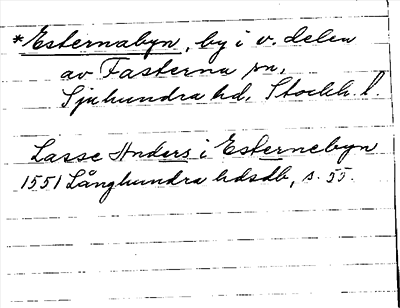 *Esternabyn, by i v. delen
av Fasterna sn,
Sjuhundra hd, Stockh. l.
Lasse Anders i Esternebyn
1551 Långhundra hdsdb, s. 55.